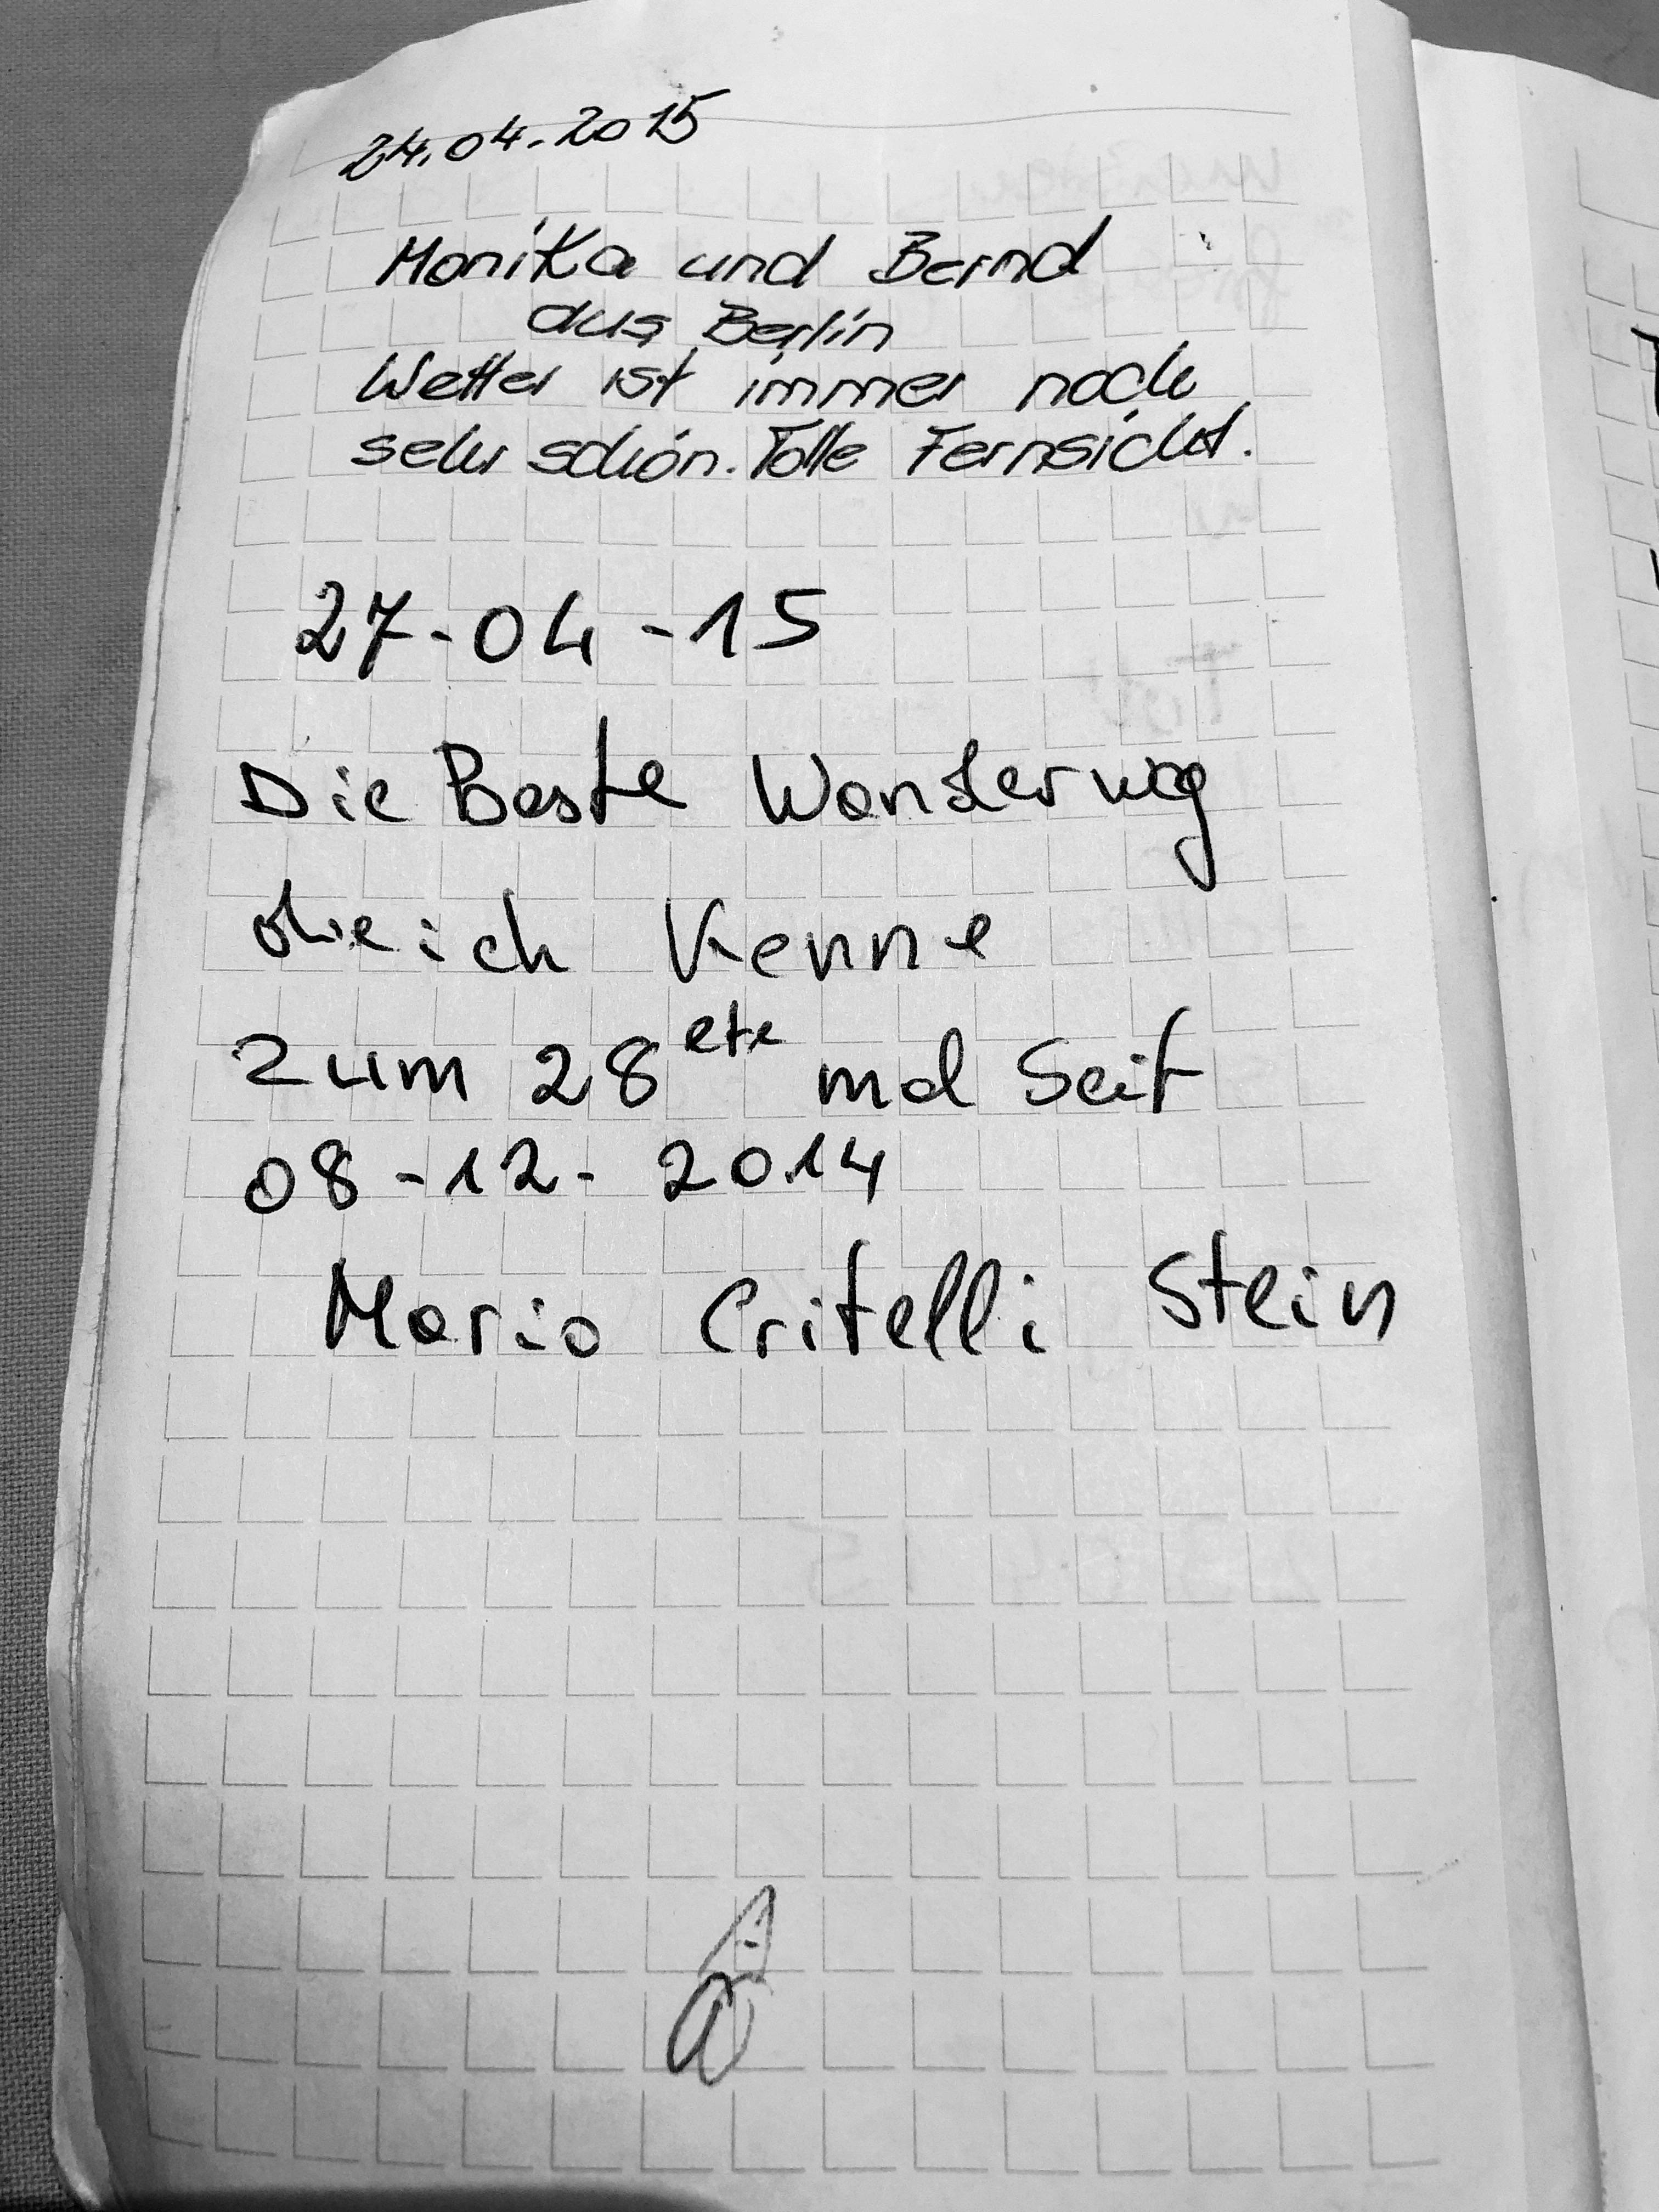 24.04.2015
Monika und Bernd
aus Berlin
Wetter ist immer noch
sehr schön. Tolle Fernsicht.
27-04-15
Die Beste Wanderung
die ich Kenne
zum 28ete mal Seit
08-12-2014
Mario Critelli Stein